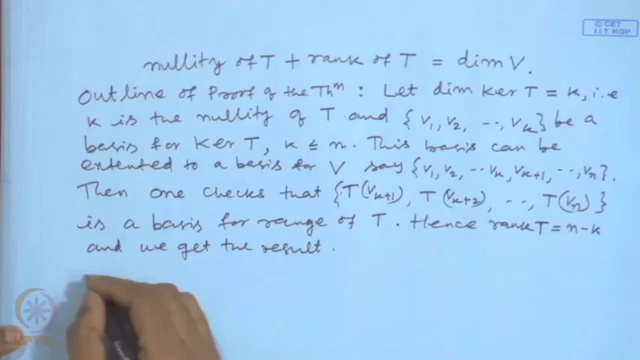 © CET
I.I.T. KGP
nullity of T + rank of T = dim V.
Outline of Proof of the Thᵐ : Let dim Ker T = k, i.e
k is the nullity of T and {v₁, v₂, ⋯, vₖ} be a
basis for Ker T, k ≤ n. This basis can be
extented to a basis for V say {v₁, v₂, ⋯ vₖ, vₖ₊₁, ⋯, vₙ}.
Then one checks that {T(vₖ₊₁), T(vₖ₊₂), ⋯, T(vₙ)}
is a basis for range of T. Hence rank T = n-k
and we get the result.